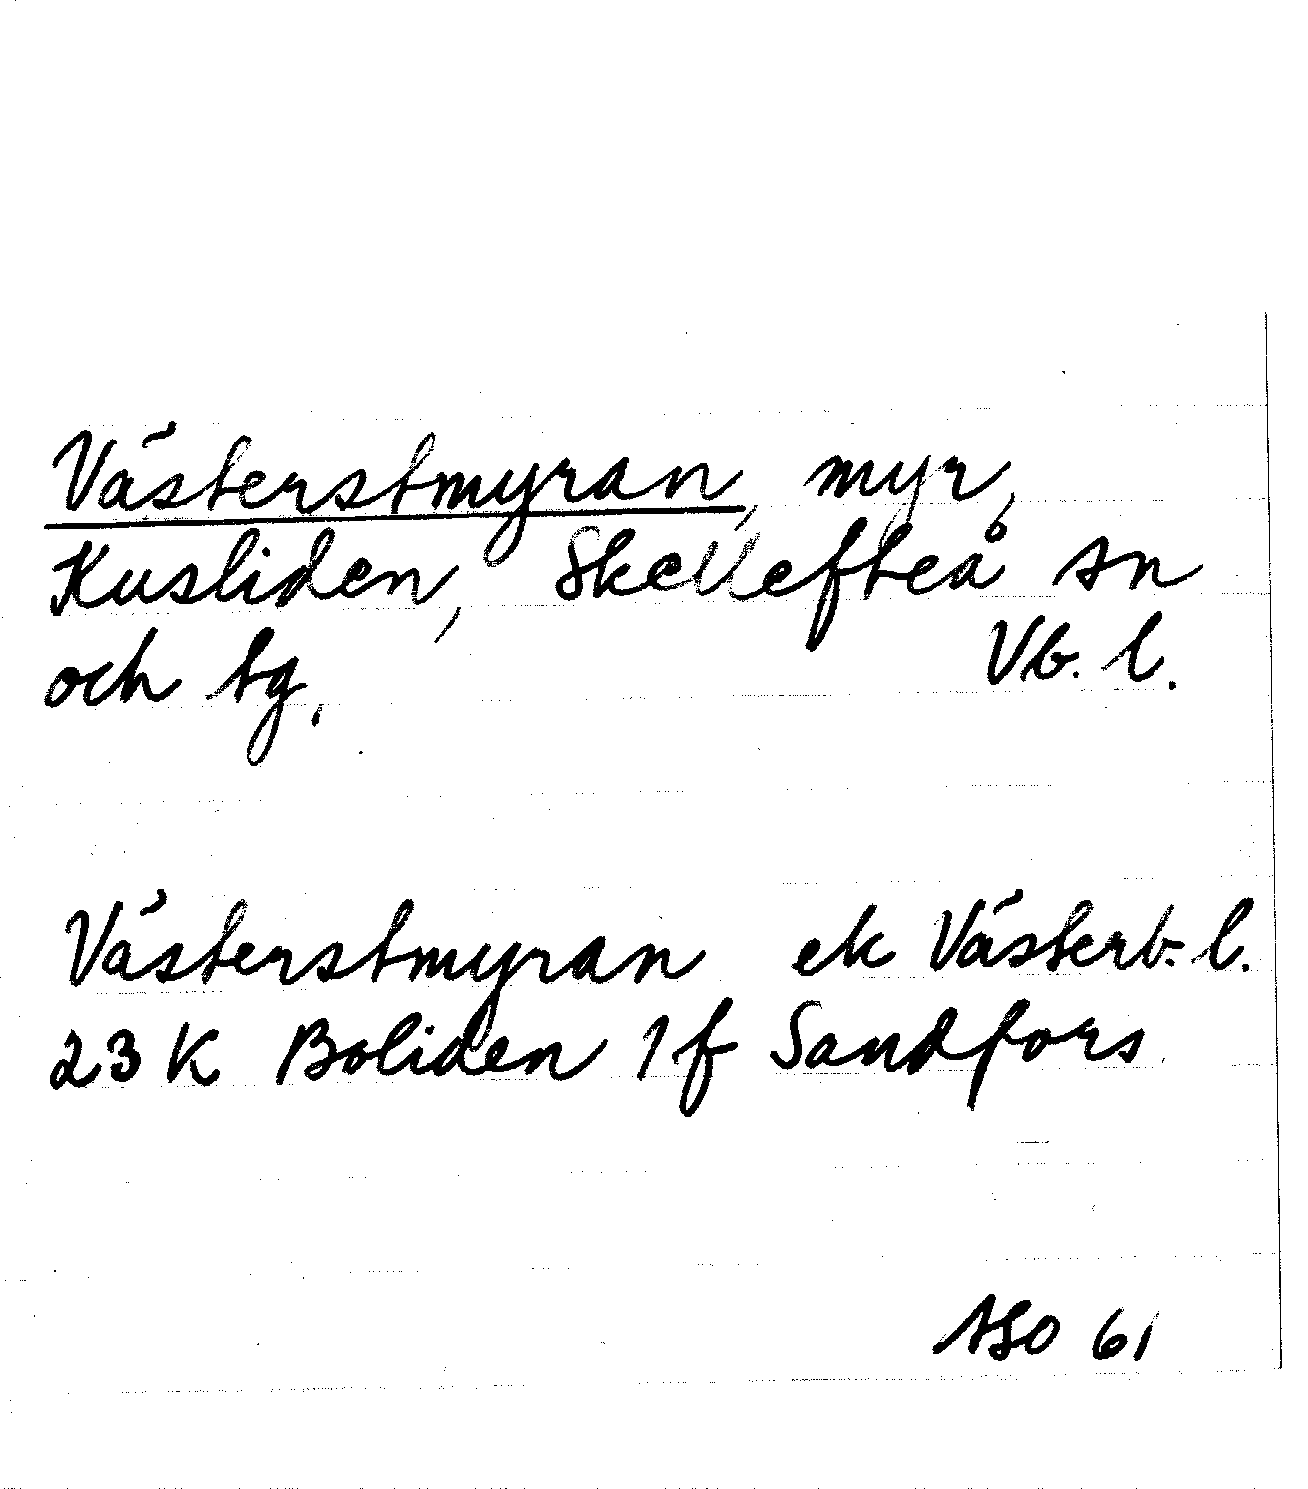 Västerstmyran, myr,
Kusliden, Skellefteå sn
och tg, Vb. l.
Västerstmyran ek Västerb. l.
23 K Boliden 1 f Sandfors
ASO 61